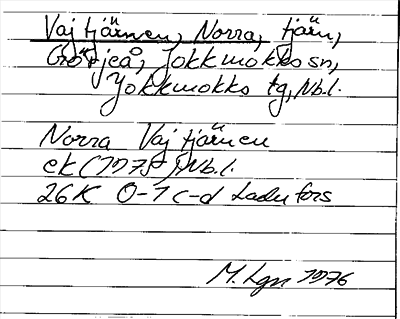 Vajtjärnen, Norra, tjärn,
Jokkmokks sn,
Jokkmokks tg, Nb.l.
Norra Vajtjärnen
ek (1975) Nb.l.
26K 0-1 c-d
M. Lgn 1976